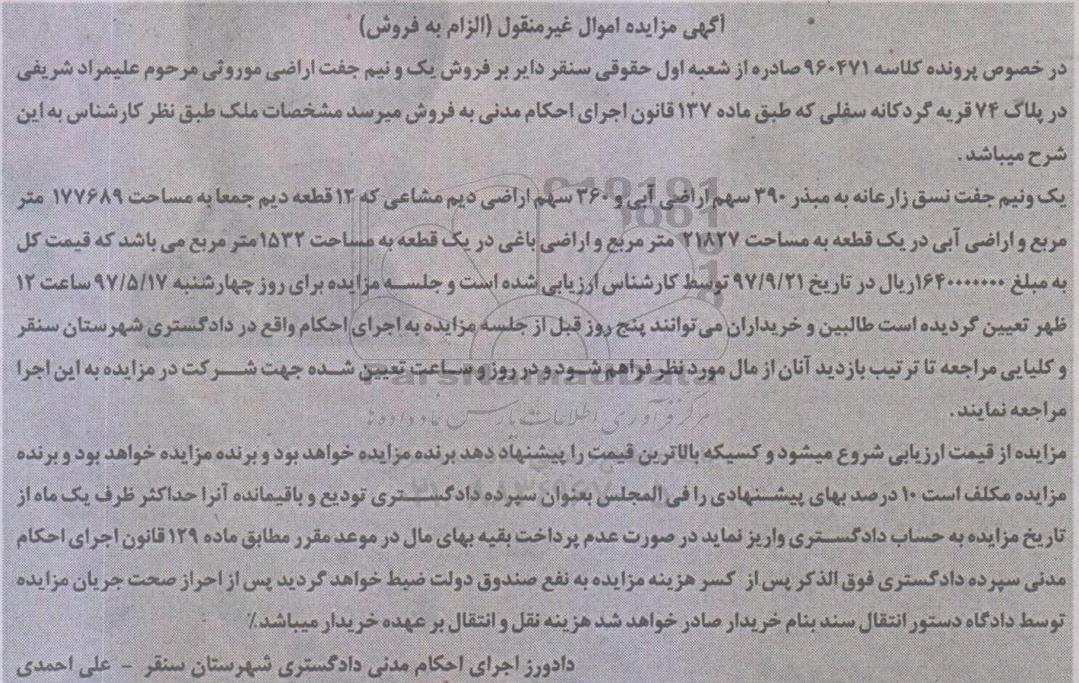 آگهی مزایده اموال غیرمنقول (الزام به فروش)
در خصوص پرونده کلاسه ۹۶۰۴۷۱ صادره از شعبه اول حقوقی سنقر دایر بر فروش یک و نیم جفت اراضی موروثی مرحوم علیمراد شریفی
در پلاک ۷۴ قریه گردکانه سفلی که طبق ماده ۱۳۷ قانون اجرای احکام مدنی به فروش میرسد مشخصات ملک طبق نظر کارشناس به این
شرح میباشد.
یک ونیم جفت نسق زارعانه به مبذر ۳۹۰ سهم اراضی آبی و ۳۶۰ سهم اراضی دیم مشاعی که ۱۲ قطعه دیم جمعا به مساحت ۱۷۷۶۸۹ متر
مربع و اراضی آبی در یک قطعه به مساحت ۲۱۸۲۷ متر مربع و اراضی باغی در یک قطعه به مساحت ۱۵۳۲ متر مربع می باشد که قیمت کل
به مبلغ ۱۶۴۰۰۰۰۰۰۰ ریال در تاریخ ۹۷/۹/۲۱ توسط کارشناس ارزیابی شده است و جلسه مزایده برای روز چهارشنبه ۹۷/۵/۱۷ ساعت ۱۲
ظهر تعیین گردیده است طالبین و خریداران می توانند پنج روز قبل از جلسه مزایده به اجرای احکام واقع در دادگستری شهرستان سنقر
و کلیایی مراجعه تا ترتیب بازدید آنان از مال مورد نظر فراهم شود و در روز و ساعت تعیین شده جهت شرکت در مزایده به این اجرا
مراجعه نمایند.
مرکز فرآوری اطلاعات پارس نماد داده ها
مزایده از قیمت ارزیابی شروع میشود و کسیکه بالاترین قیمت را پیشنهاد دهد برنده مزایده خواهد بود و برنده مزایده خواهد بود و برنده
مزایده مکلف است ۱۰ درصد بهای پیشنهادی را فی المجلس بعنوان سپرده دادگستری تودیع و باقیمانده آنرا حداکثر ظرف یک ماه از
تاریخ مزایده به حساب دادگستری واریز نماید در صورت عدم پرداخت بقیه بهای مال در موعد مقرر مطابق ماده ۱۲۹ قانون اجرای احکام
مدنی سپرده دادگستری فوق الذکر پس از کسر هزینه مزایده به نفع صندوق دولت ضبط خواهد گردید پس از احراز صحت جریان مزایده
توسط دادگاه دستور انتقال سند بنام خریدار صادر خواهد شد هزینه نقل و انتقال بر عهده خریدار میباشد٪
دادورز اجرای احکام مدنی دادگستری شهرستان سنقر - علی احمدی